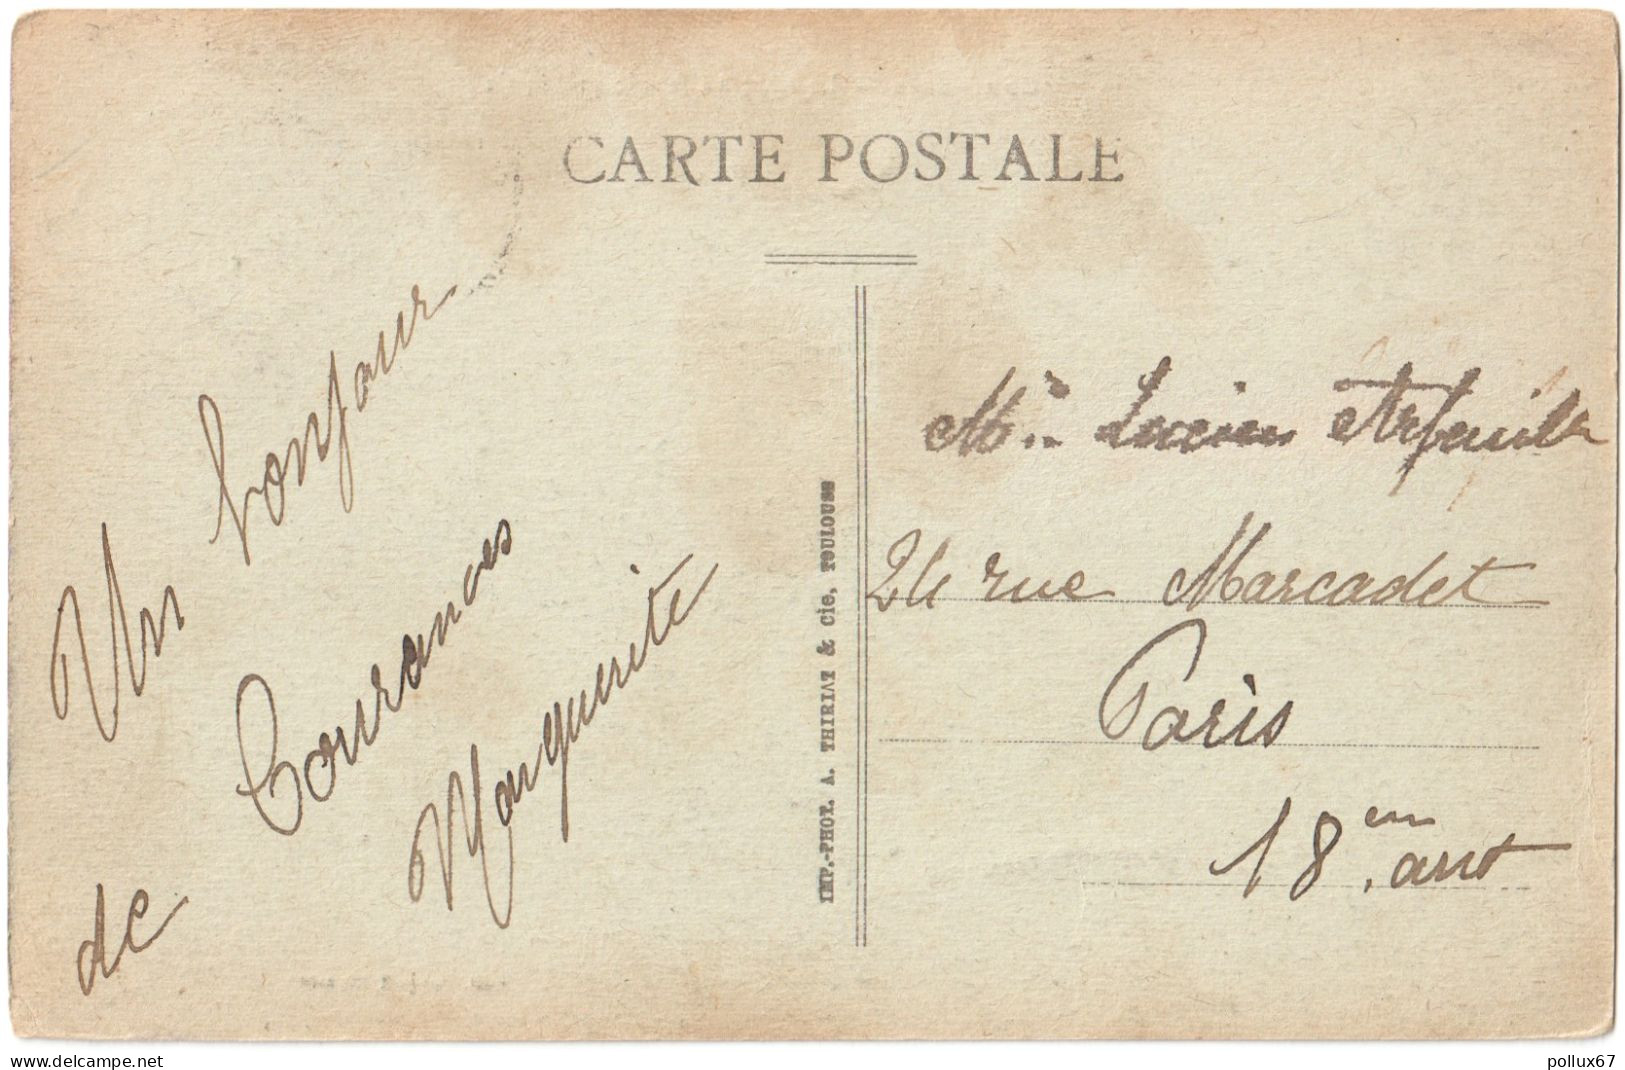 CARTE POSTALE
Un bonjour
de Courances
Marguerite
IMP.-PHOT. A. THIRIAT & Cie, TOULOUSE
Lucien Arfeuille
24 rue Marcadet
Paris
18em arrt
delcampe.net
pollux67